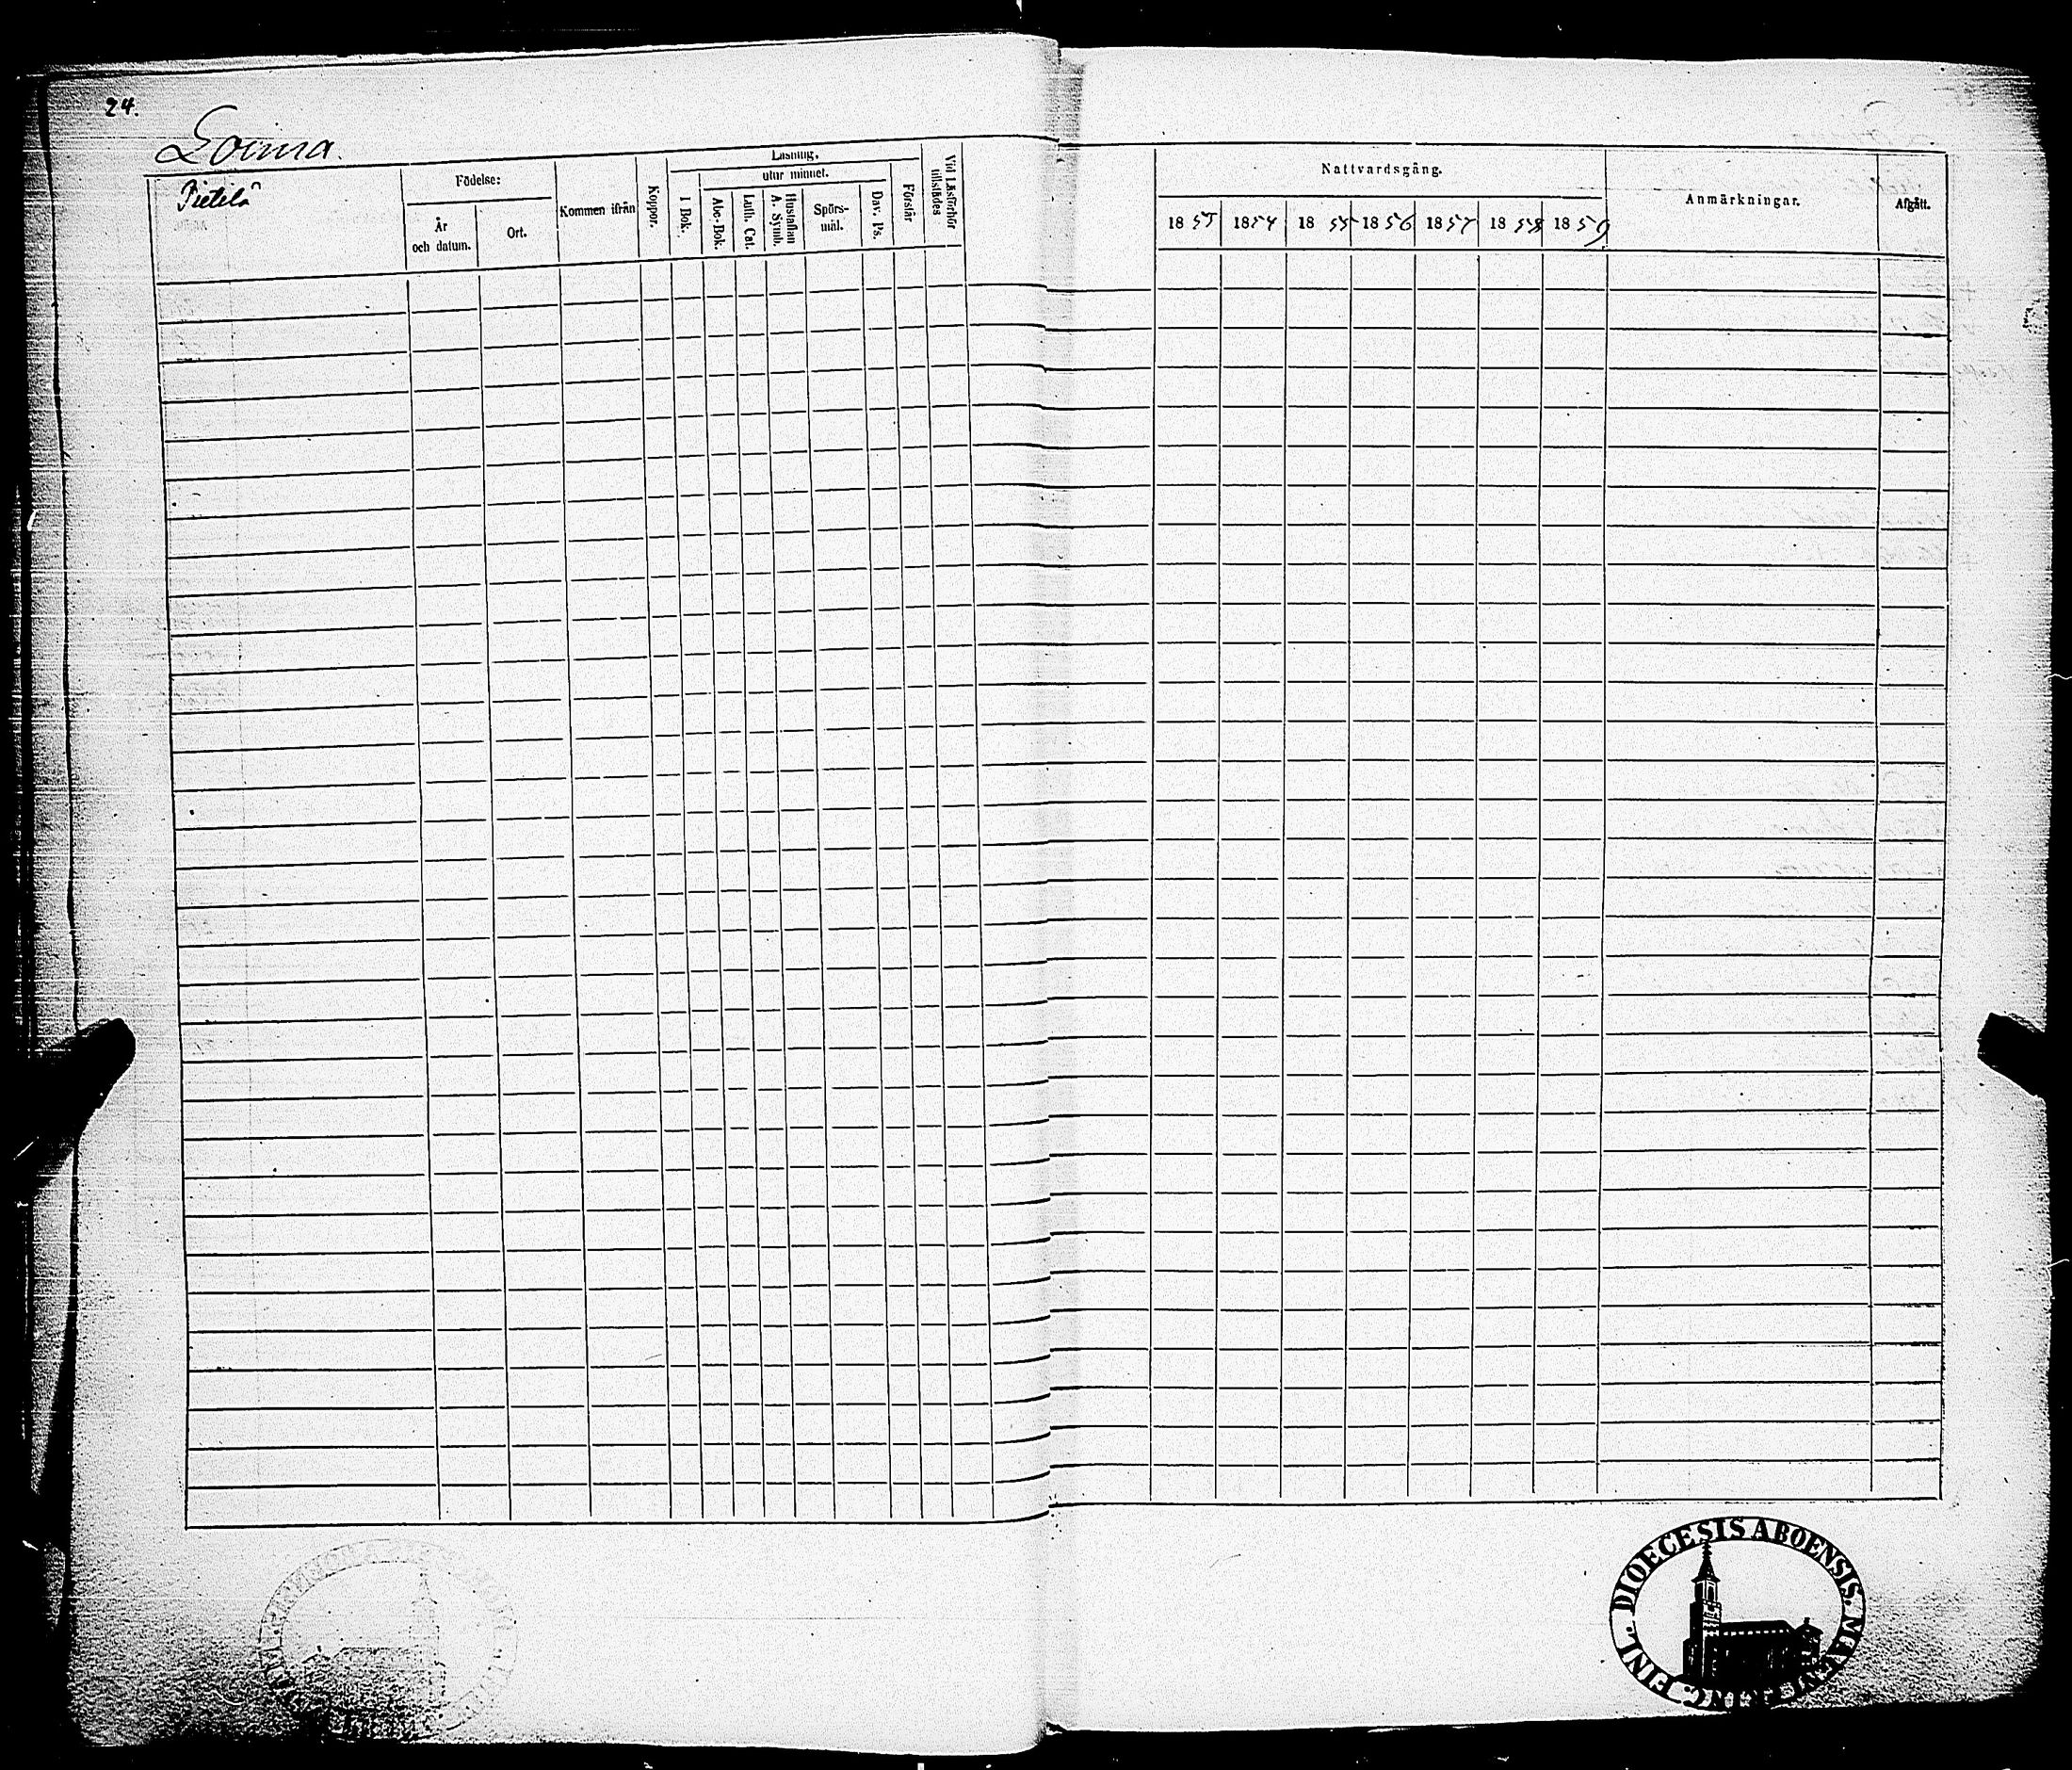 24.
Loima.
Pietilä
Födelse:
År
och datum.
Ort.
Kommen ifrån
Koppor.
Läsning.
utur minnet.
I Bok.
Abc-Bok.
Luth. Cat.
Hustaflan
A. Symb.
Spörs-
mål.
Dav. Ps.
Förstår
Vid Läsförhör
tillstädes
Nattvardsgång.
18 53 1854 18 55 1856 1857 18 58 18 59
Anmärkningar.
Afgått.
FINL. DIOECESIS ABOENSIS.